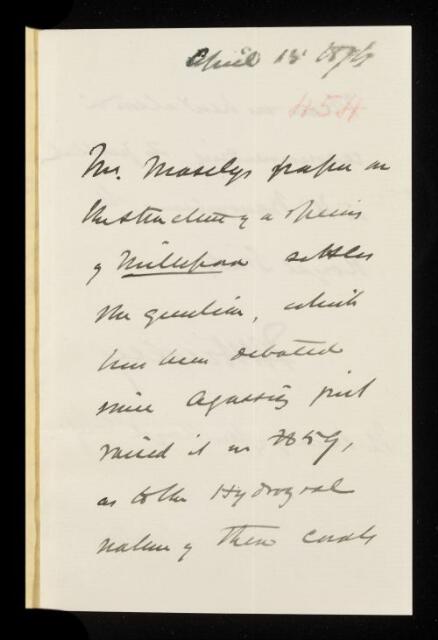 April 15 1876
454
Mr. Moselys paper on
the structure of a species
of Millepora settles
the question, which
has been debated
since Agassiz first
raised it in 1859,
as to the Hydrozoal
nature of these corals